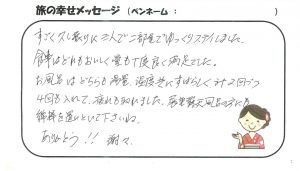 旅の幸せメッセージ（ペンネーム： ）
すごく久し振りに二人で二部屋でゆっくりステイしました。
食事はどれもおいしく量も丁度良く満足でした。
お風呂はどちらも満喫、湯度共にすばらしく 2回づつ
4回も入れて、疲れも取れました。露天風呂
を置いといて下さいね。
ありがとう!! 謝々